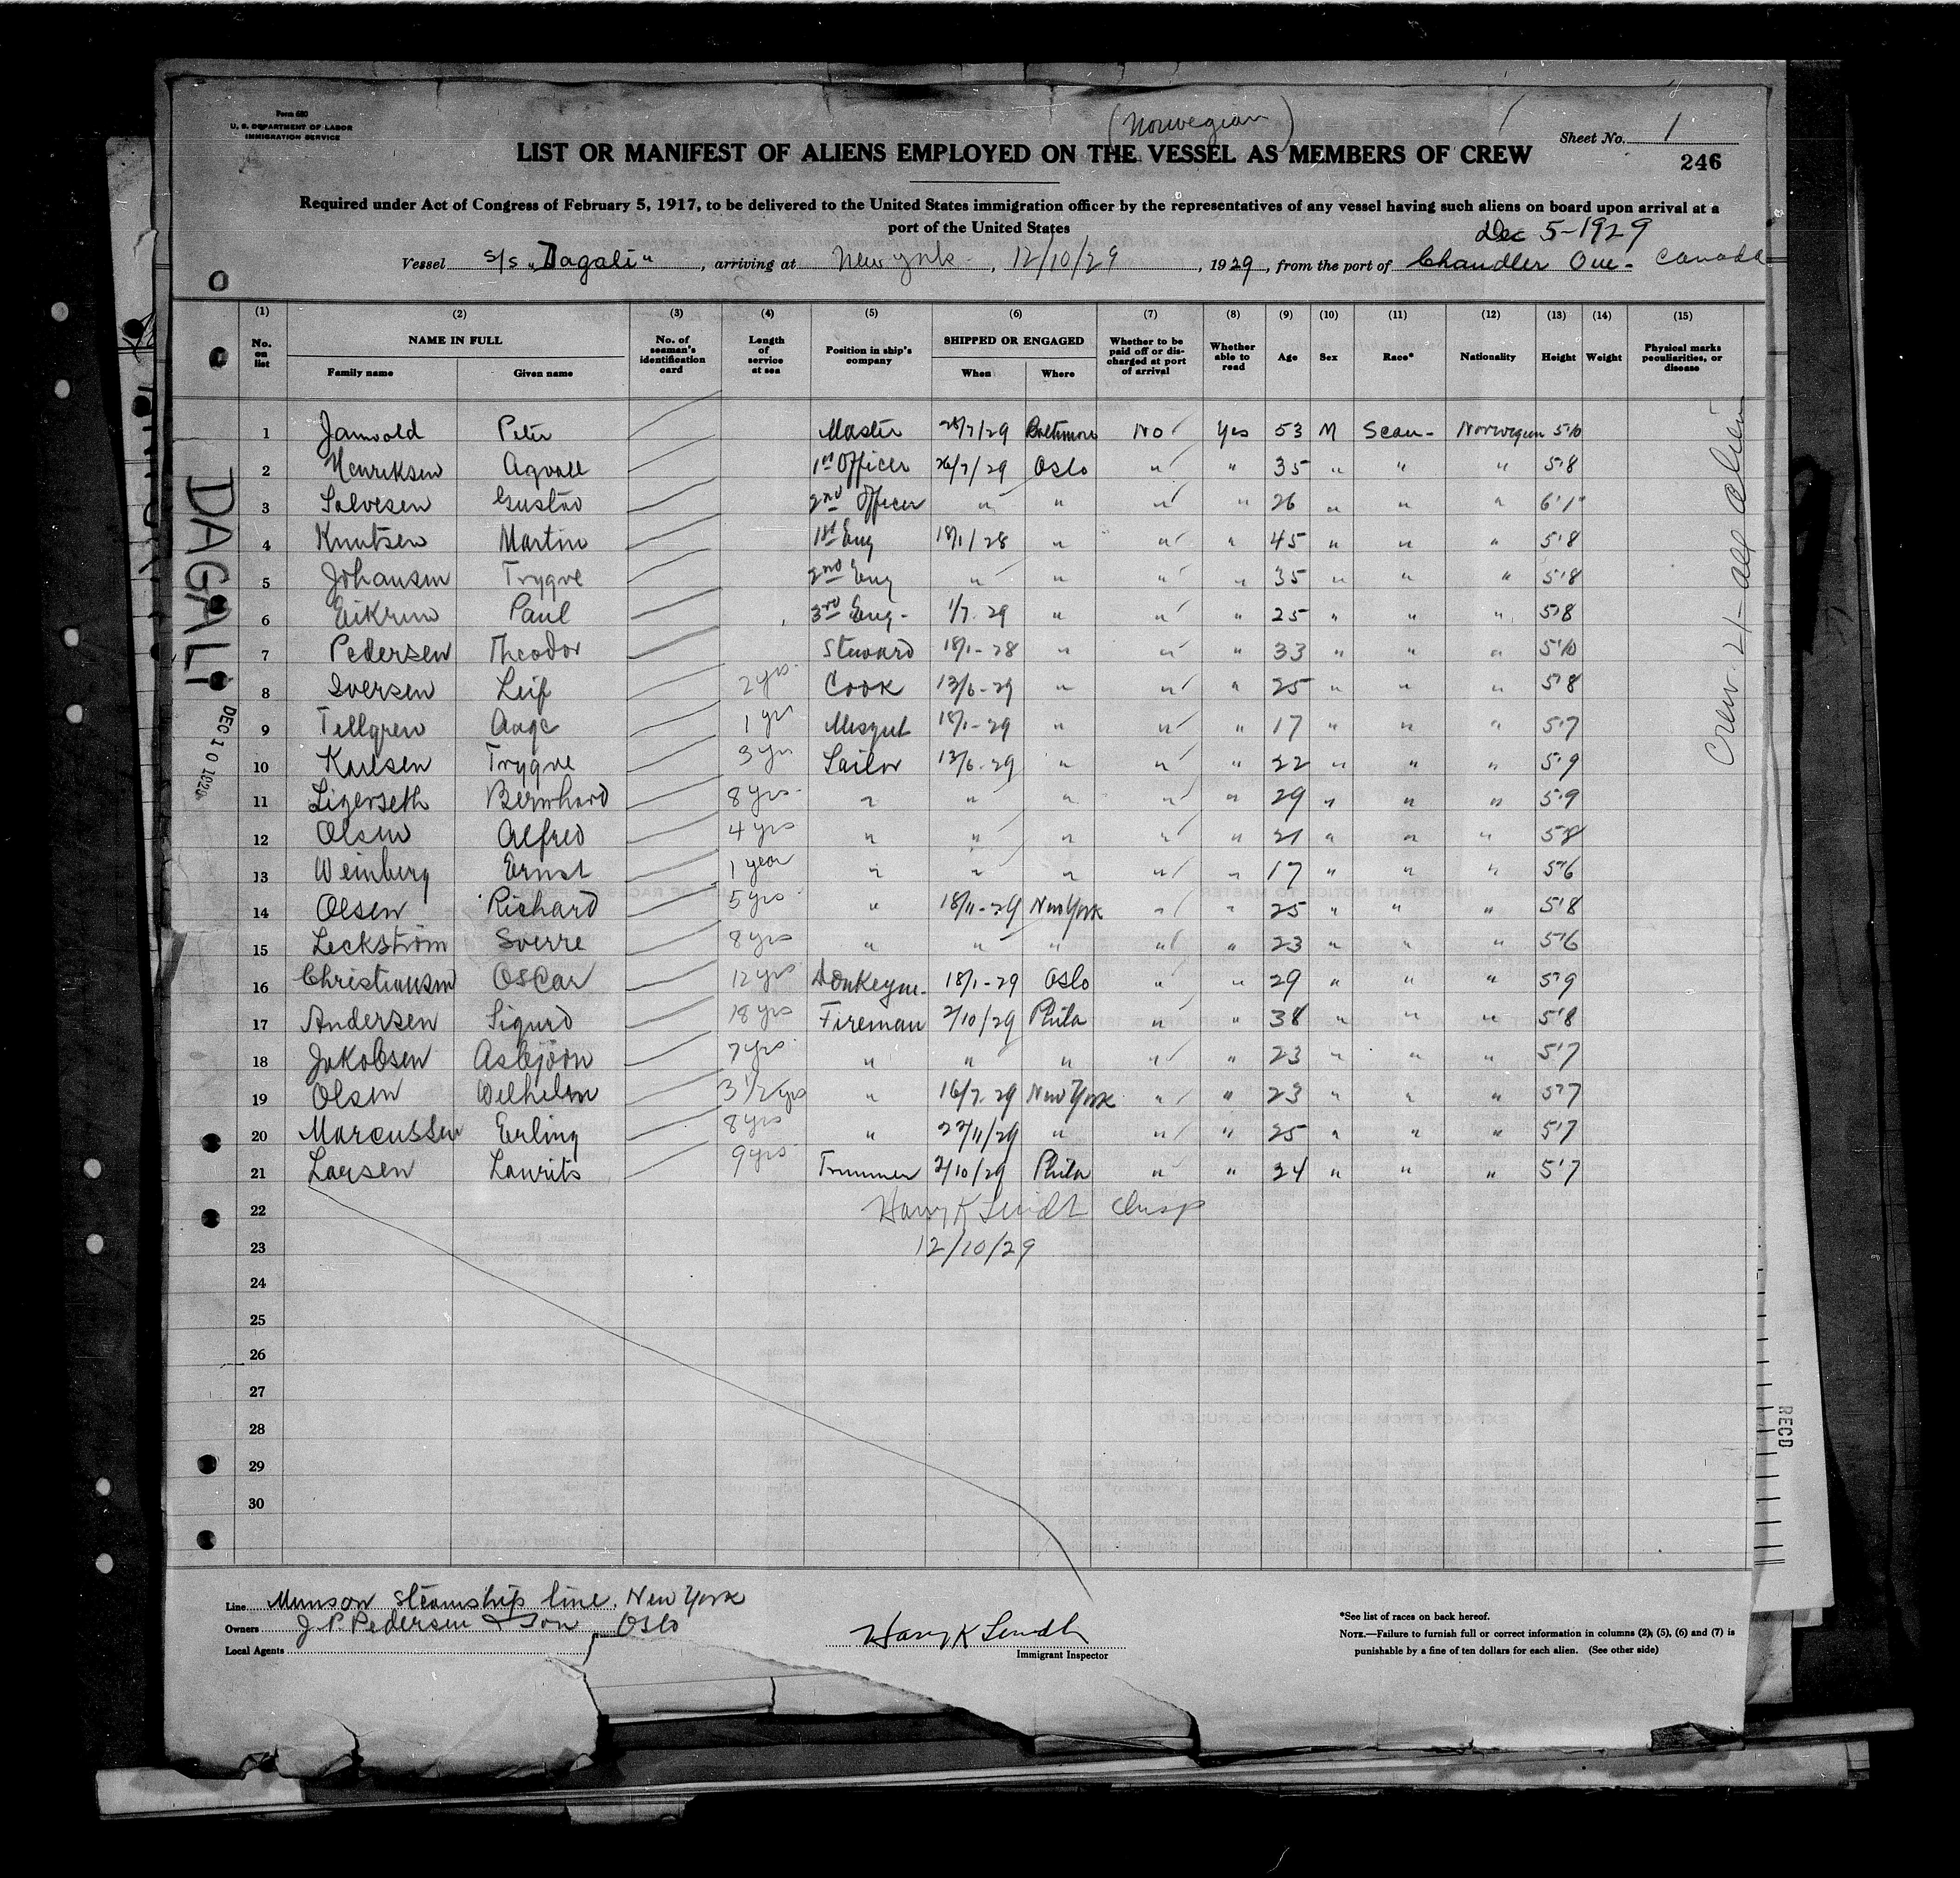 Form 680
U. S. DEPARTMENT OF LABOR
IMMIGRATION SERVICE
(Norwegian)
Sheet No. 1
LIST OR MANIFEST OF ALIENS EMPLOYED ON THE VESSEL AS MEMBERS OF CREW
246
Required under Act of Congress of February 5, 1917, to be delivered to the United States immigration officer by the representatives of any vessel having such aliens on board upon arrival at a
port of the United States
Dec 5-1929
Vessel S/S "Dagali", arriving at New York, 12/10/29, 1929, from the port of Chandler Que- Canada
(1) (2) (3) (4) (5) (6) (7) (8) (9) (10) (11) (12) (13) (14) (15)
No. on list NAME IN FULL Family name Given name No. of seaman's identification card Length of service at sea Position in ship's company SHIPPED OR ENGAGED When Where Whether to be paid off or discharged at port of arrival Whether able to read Age Sex Race* Nationality Height Weight Physical marks peculiarities, or disease
1 Peter Master 28/7/29 Baltimore No Yes 53 M Scan- Norwegian 5'10
2 Henriksen Agvall 1st Officer 26/7/29 Oslo " " 35 " " " 5'8
3 Solvesen Gustav 2nd Officer " " " " 26 " " " 6'1"
4 Knutsen Martin 1st Eng 18/1/28 " " " 45 " " " 5'8
5 Johansen Trygve 2nd Eng " " " " 35 " " " 5'8
6 Eikrem Paul 3rd Eng- 1/7-29 " " " 25 " " " 5'8
7 Pedersen Theodor Steward 18/1-28 " " " 33 " " " 5'10
8 Iversen Leif 2 yrs Cook 13/6-29 " " " 25 " " " 5'8
9 Tellgren Aage 1 yr 18/1-29 " " " 17 " " " 5'7
10 Karlsen Trygve 3 yrs Sailor 13/6-29 " " " 22 " " " 5'9
11 Ligerseth Bernhard 8 yrs " " " " " 29 " " " 5'9
12 Olsen Alfred 4 yrs " " " " " 21 " " " 5'8
13 Weinberg Ernst 1 year " " " " " 17 " " " 5'6
14 Olsen Richard 5 yrs " 18/11-29 New York " " 25 " " " 5'8
15 Leckström Sverre 8 yrs " " " " " 23 " " " 5'6
16 Christiansen Oscar 12 yrs Donkeym. 18/1-29 Oslo " " 29 " " " 5'9
17 Andersen Sigurd 18 yrs Fireman 2/10/29 Phila " " 38 " " " 5'8
18 Jakobsen Asbjörn 7 yrs " " " " " 23 " " " 5'7
19 Olsen Wilhelm 3 1/2 yrs " 16/7-29 New York " " 23 " " " 5'7
20 Marcussen Erling 8 yrs " 22/11/29 " " " 25 " " " 5'7
21 Larsen Laurits 9 yrs Trimmer 2/10/29 Phila " " 24 " " " 5'7
22 Harry K Lindt Insp
23 12/10/29
24
25
26
27
28
29
30
DAGALI
DEC 10 1929
Crew-21-all aliens
RECD
Line Munson Steamship line, New York
Owners J. P. Pedersen & Son, Oslo
Local Agents
Harry K Lindt
Immigrant Inspector
*See list of races on back hereof.
NOTE.—Failure to furnish full or correct information in columns (2), (5), (6) and (7) is
punishable by a fine of ten dollars for each alien. (See other side)